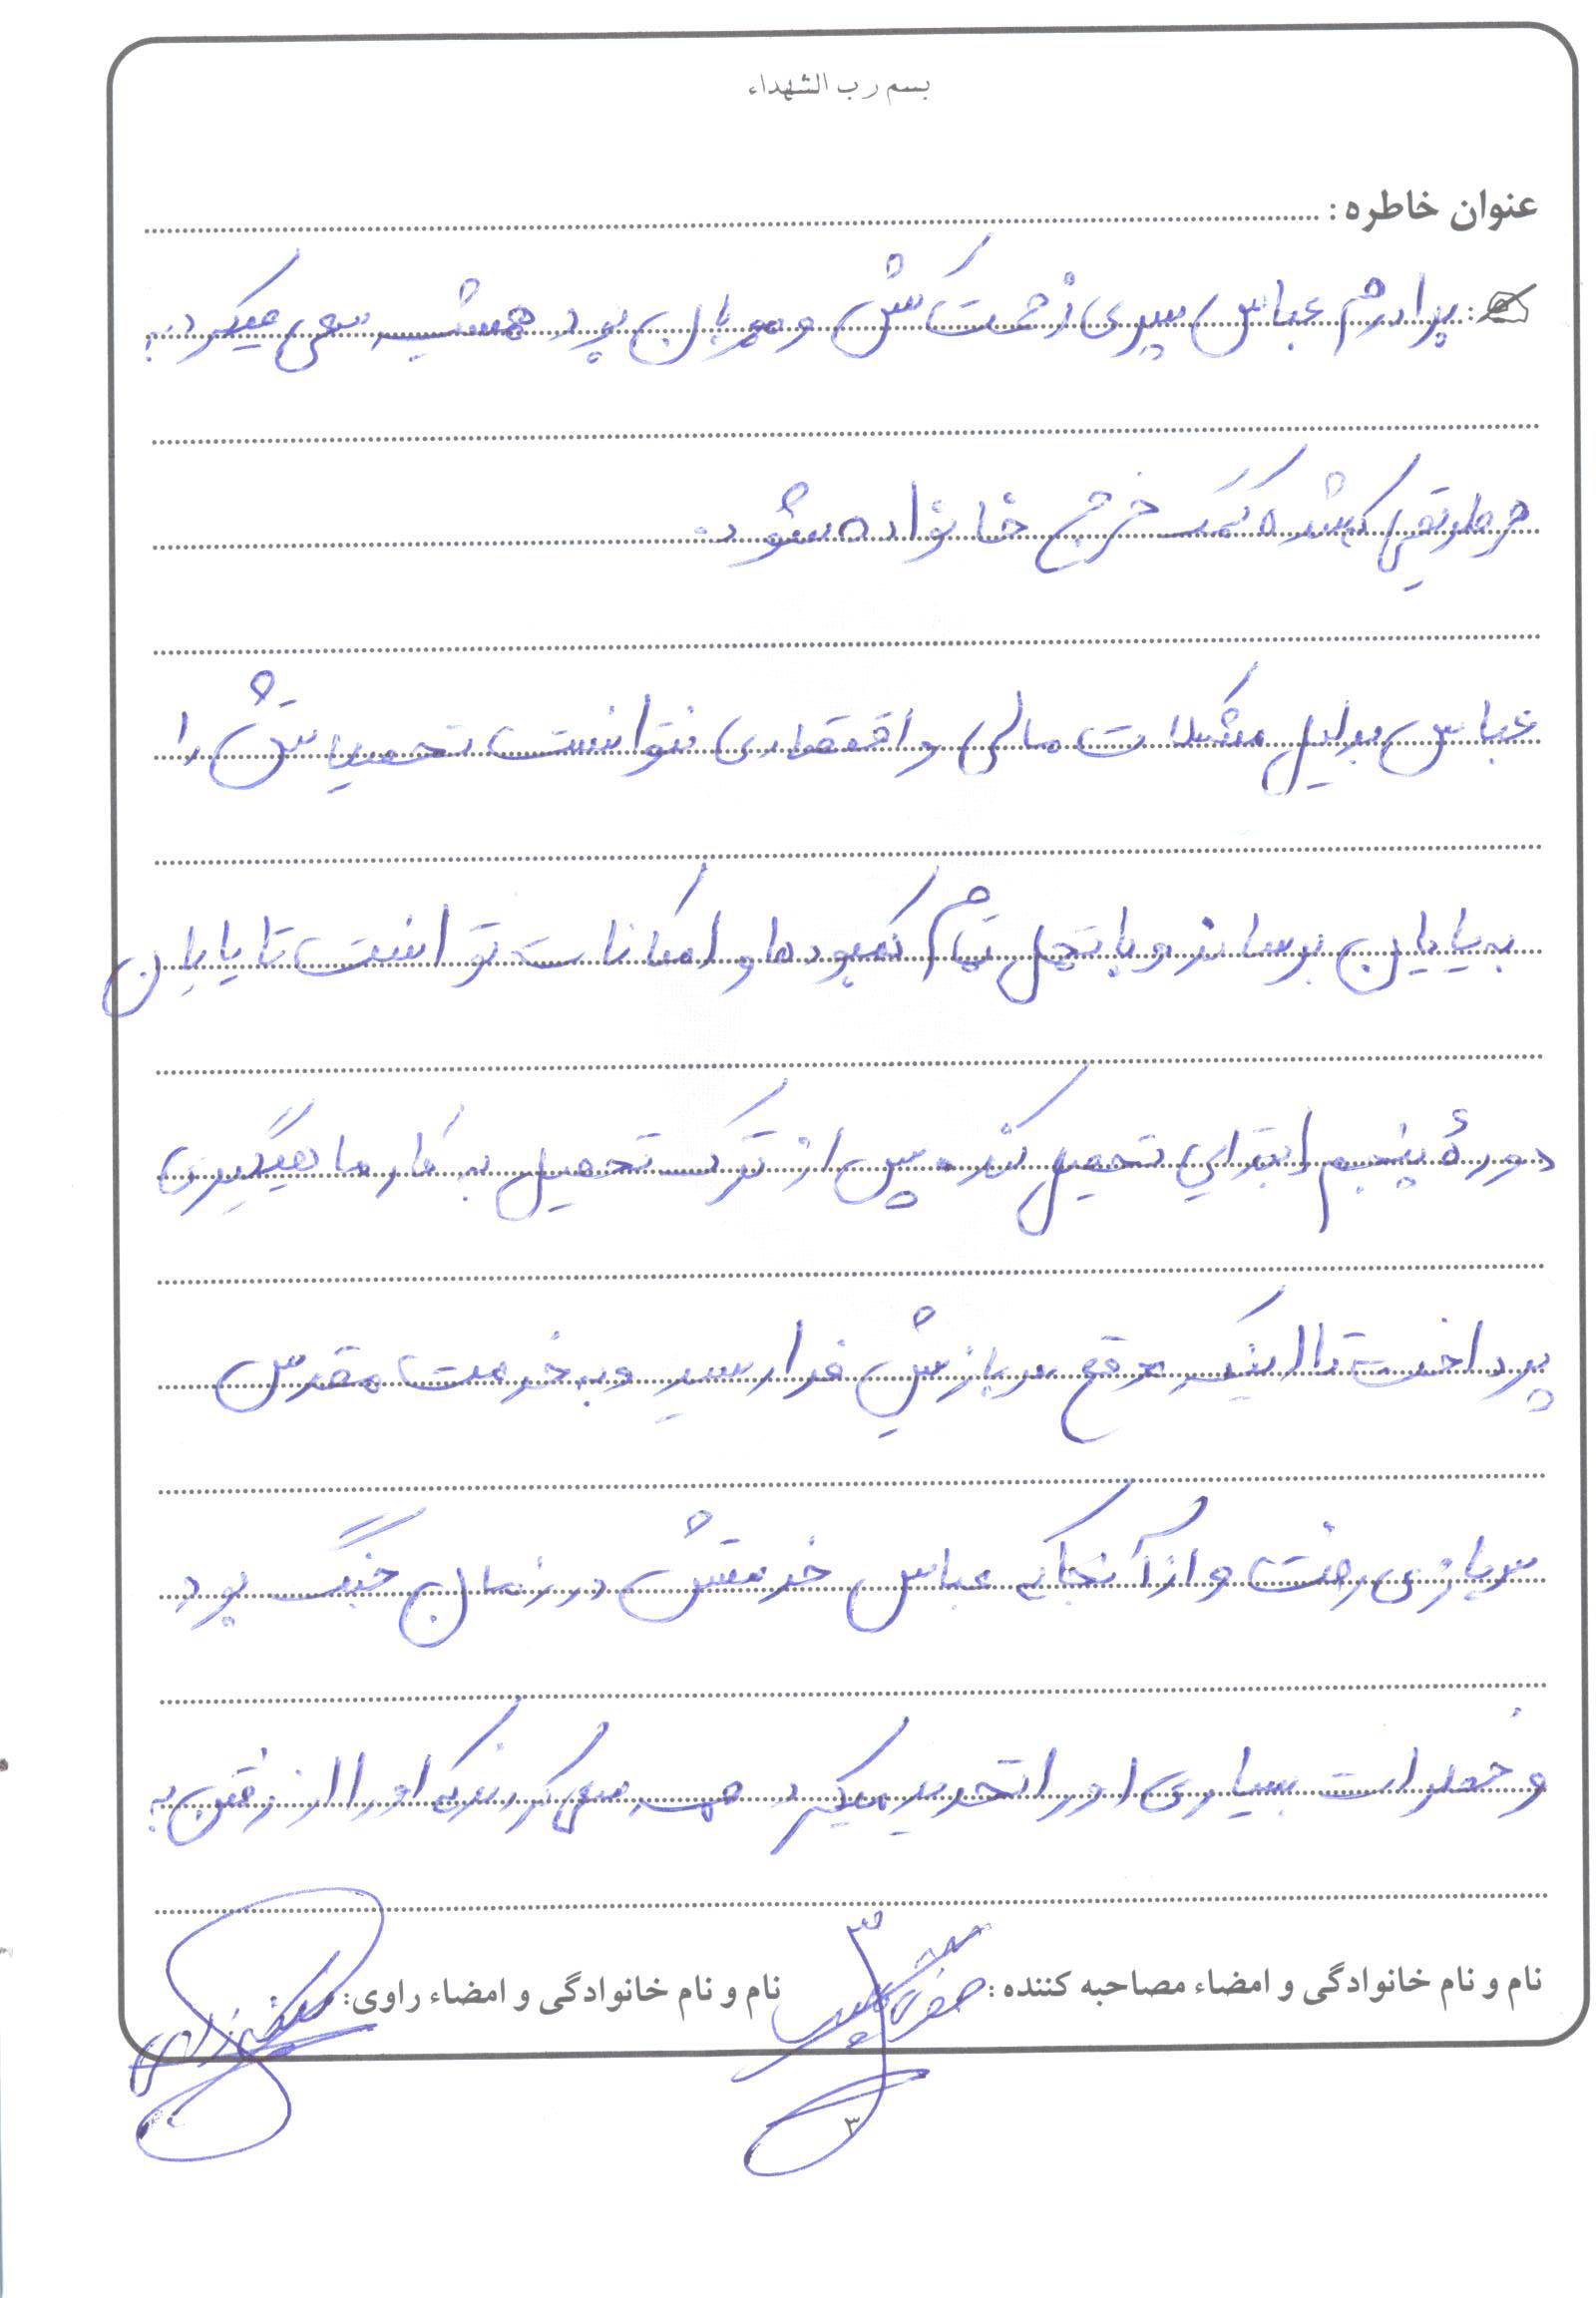 بسم رب الشهداء
عنوان خاطره :
: برادرم عباس پسری زحمت کش و مهربان بود همیشه سعی میکرد به
هر طریقی که شده کمک خرج خانواده شود.
عباس بدلیل مشکلات مالی و اقتصادی نتوانست تحصیلاتش را
به پایان برساند و با تحمل تمام کمبودها و امکانات توانست تا پایان
دورهٔ پنجم ابتدایی تحصیل کند. پس از ترک تحصیل به کار ماهیگیری
پرداخت تا اینکه موقع سربازیش فرا رسید و به خدمت مقدس
سربازی رفت و از آنجا که عباس خدمتش در زمان جنگ بود
و خطرات بسیاری او را تحدید میکرد همه سعی کردند که او را از رفتن به
نام و نام خانوادگی و امضاء مصاحبه کننده : نام و نام خانوادگی و امضاء راوی:
۳